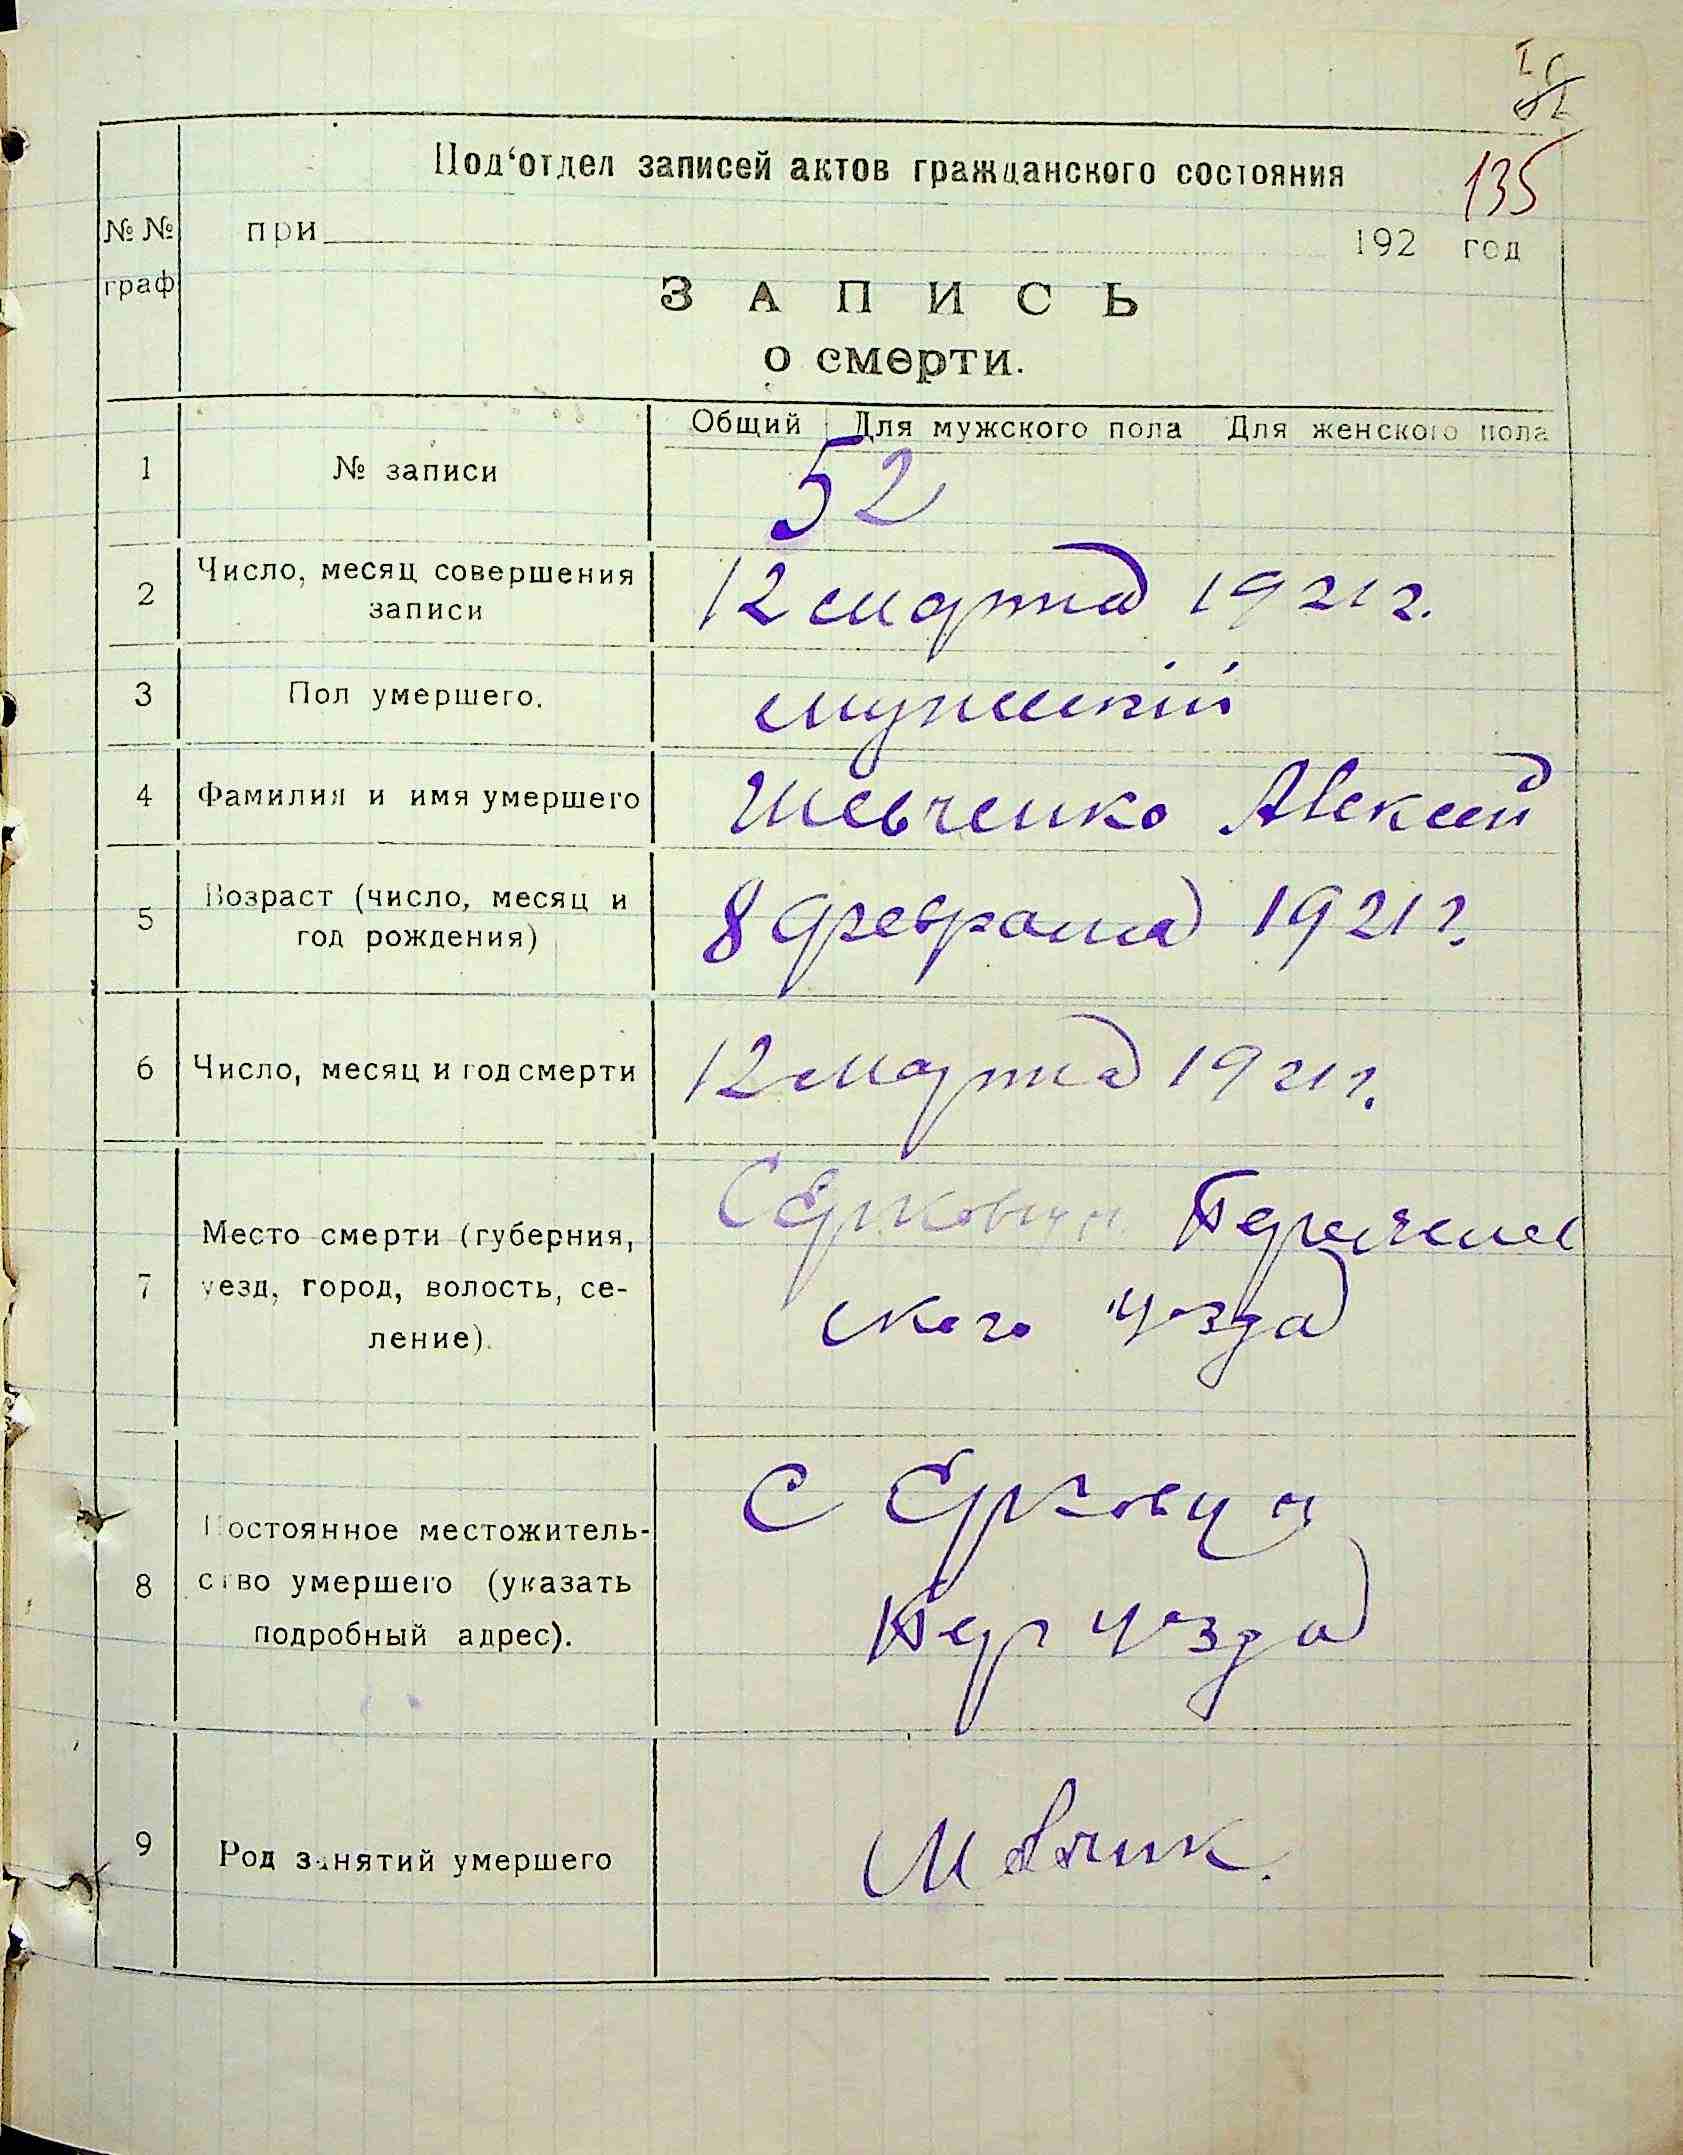 135
Под‘отдел записей актов гражданского состояния
№ № граф
при 192 год
ЗАПИСЬ
о смерти.
Общий Для мужского пола Для женского пола
1 № записи 52
2 Число, месяц совершения
записи
12 марта 1921 г.
3 Пол умершего. мужской
4 Фамилия и имя умершего Шевченко Алексей
5 Возраст (число, месяц и
год рождения)
8 февраля 1921 г.
6 Число, месяц и год смерти 12 марта 1921 г.
7 Место смерти (губерния,
уезд, город, волость, се-
ление).
С Ерковци Переяслов
ского уезда
8 Постоянное местожитель-
ство умершего (указать
подробный адрес).
С Ерковци
Пер уезда
9 Род занятий умершего